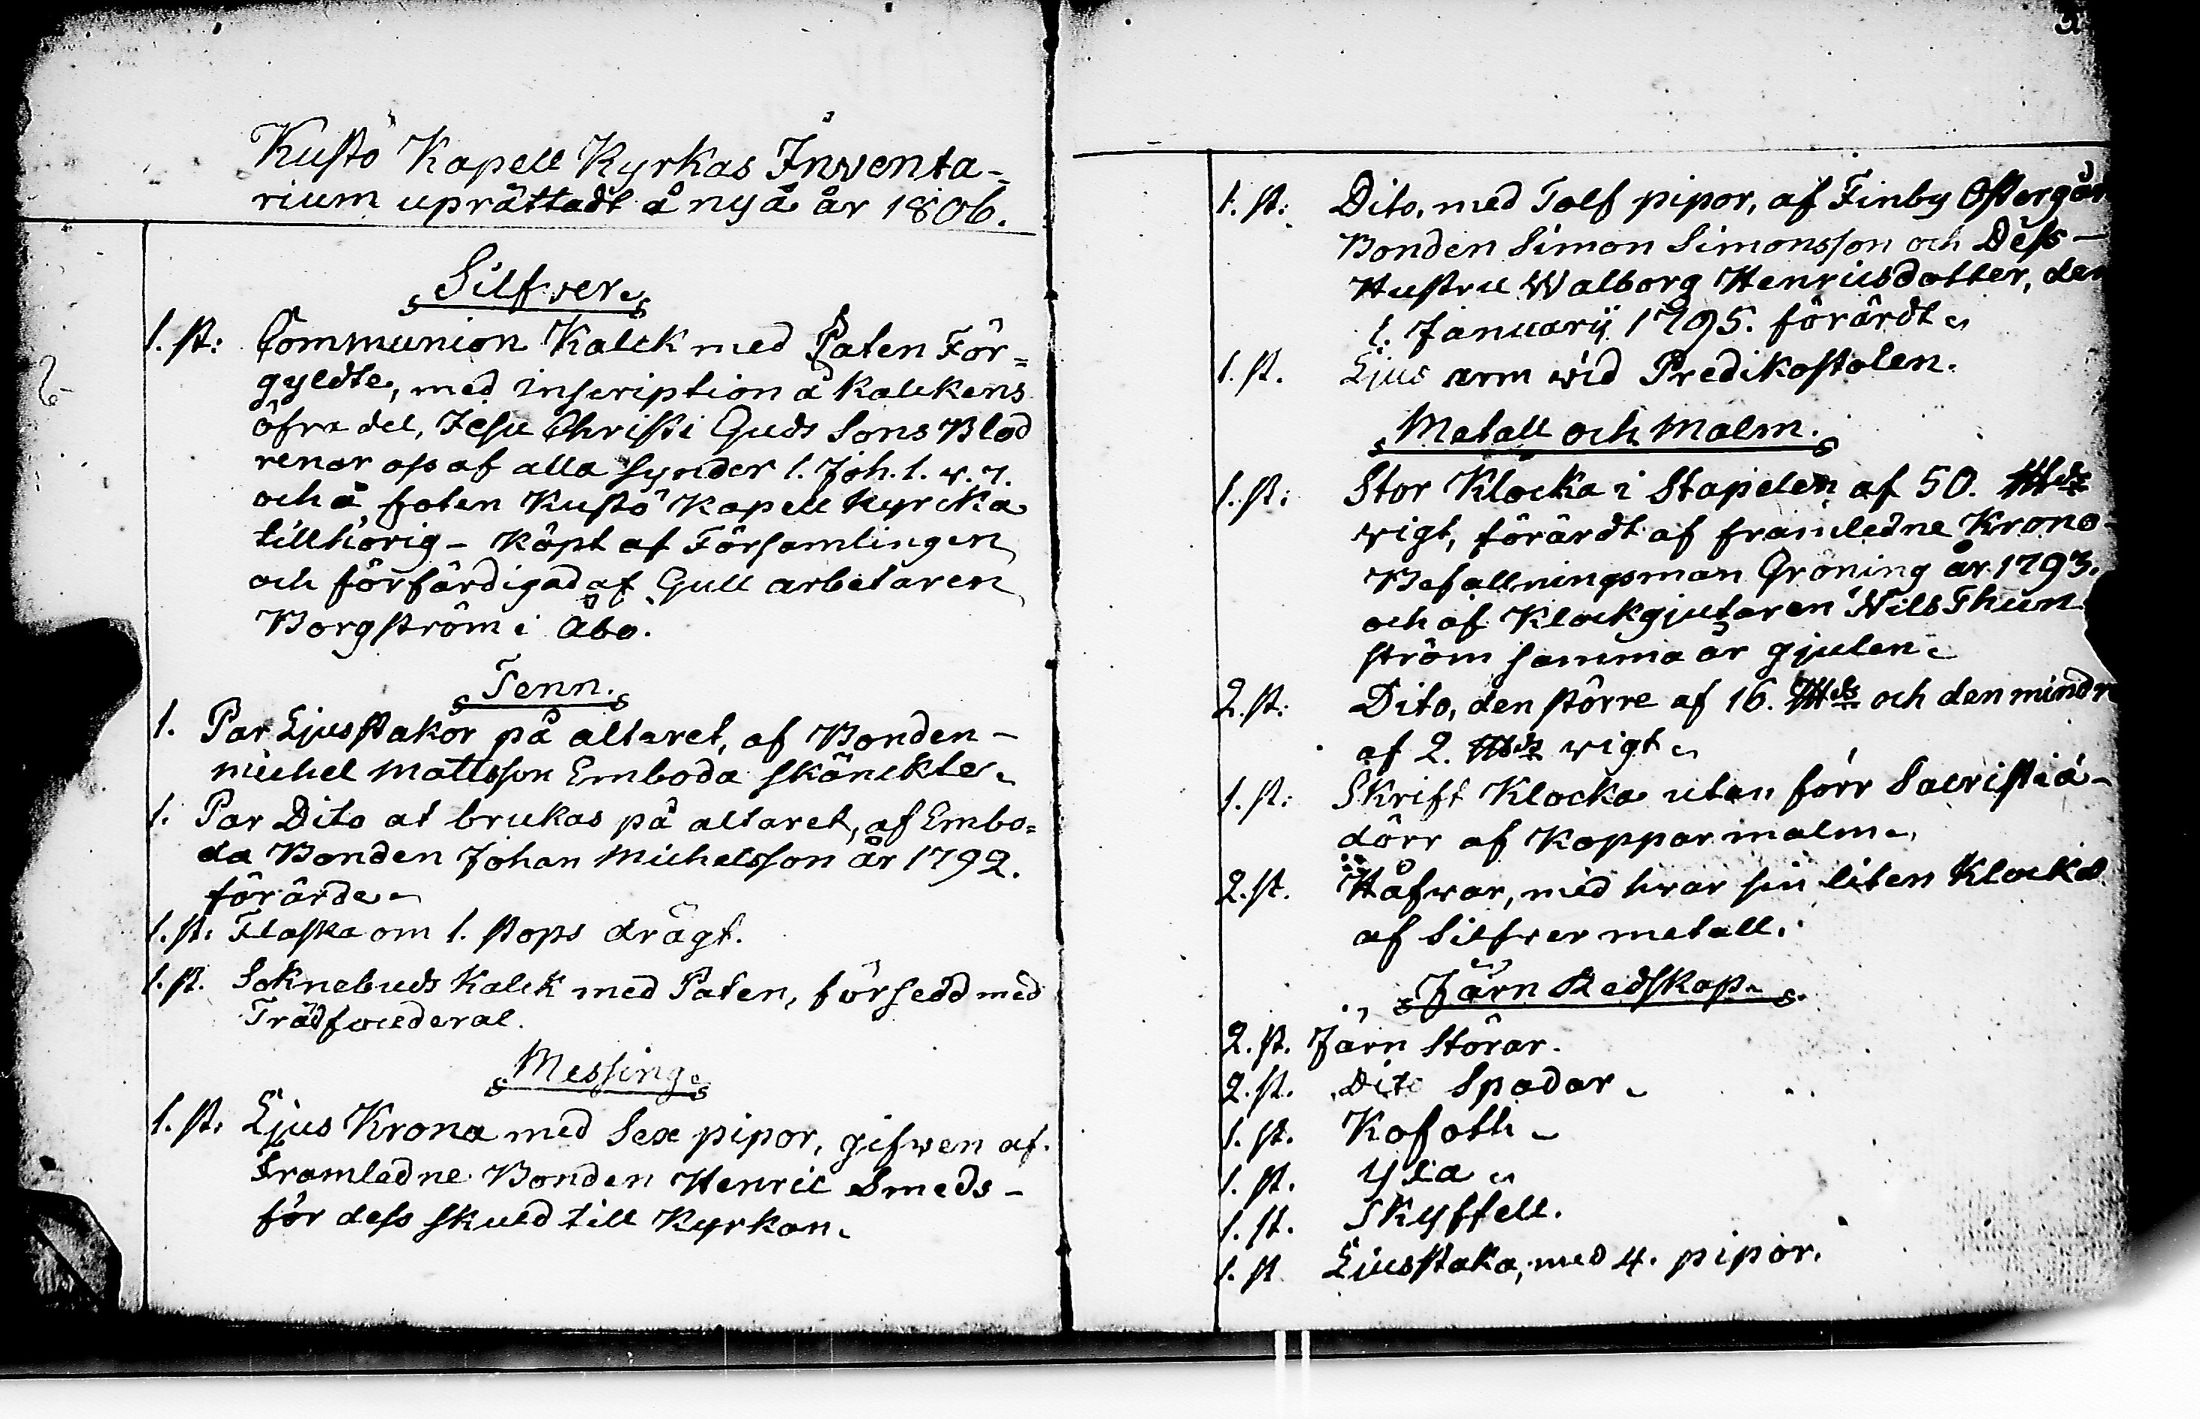 Kustö Kapell Kyrkas Inwenta-
rium uprättadt å nyå år 1806.
Silfwer.
1. st: Communion Kalck med Paten För=
gyldte, med inscription å Kalckens
öfra del, Jesu Christi Guds Sons Blod
renar oss af alla Synder 1. Joh. 1. v. 7.
och å foten Kustö Kapell Kyrcka
tillhörig - Köpt af Församlingen
och förfärdigad af Gull arbetaren
Borgström i Åbo.
Tenn.
1. Par Ljusstakor på altaret, af Bonden-
Michel Mattsson Emboda skänckte.
1. Par Dito at brukas på altaret, af Embo=
da Bonden Johan Michelsson år 1792.
förärde.
1. st: Flaska om 1. stops drägt.
1. st. Soknebuds Kalck med Paten, försedd med
Messing.
1. st: Ljus Krona med Sex pipor, gifwen af
framledne Bonden Henric Smeds-
för dess skuld till Kyrkan.
1. st: Dito, med Tolf pipor, af Finby Östergår
Bonden Simon Simonsson och Dess-
Hustru Walborg Henricsdotter, den
1. Januarij 1795. förärdt.
1. st. Ljus arm wid Predikostolen.
Metall och Malm.
1. st: Stor Klocka i Stapelen af 50.
wigt, förärdt af framledne Krono-
Befallningsman Gröning år 1793.
och af Klockgjutaren Nils Thun
ström samma år gjuten.
2. st: Dito, den större af 16. och den mindre
af 2. wigt.
1. st: Skrift Klocka utan förr Sacristiä-
dörr af Koppar malm.
2. st. Håfwar, med hwar sin liten Klocka
af Silfwer metall.
Järn Redskap.
2. st. Järn Störar.
2. st. Dito Spadar.
1. st. Kofoth.
1. st. Yxa
1. st. Skyffell.
1. st Ljusstaka, med 4. pipor.